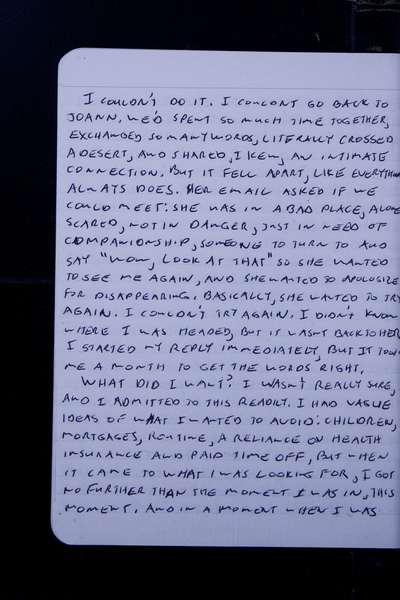 I COULDN'T DO IT. I COULDN'T GO BACK TO
JOANN. WE'D SPENT SO MUCH TIME TOGETHER,
EXCHANGED SO MANY WORDS, LITERALLY CROSSED
A DESERT, AND SHARED, I KEW, AN INTIMATE
CONNECTION. BUT IT FELL APART, LIKE EVERYTHING
ALWAYS DOES. HER EMAIL ASKED IF WE
COULD MEET: SHE WAS IN A BAD PLACE, ALONE
SCARED, NOT IN DANGER, JUST IN NEED OF
COMPANIONSHIP, SOMEONE TO TURN TO AND
SAY "WOW, LOOK AT THAT" SO SHE WANTED
TO SEE ME AGAIN, AND SHE WANTED TO APOLOGIZE
FOR DISAPPEARING. BASICALLY, SHE WANTED TO TRY
AGAIN. I COULDN'T TRY AGAIN. I DIDN'T KNOW
WHERE I WAS HEADED, BUT IT WASN'T BACK TO HER
I STARTED MY REPLY IMMEDIATELY, BUT IT TOOK
ME A MONTH TO GET THE WORDS RIGHT.
WHAT DID I WANT? I WASN'T REALLY SURE,
AND I ADMITTED TO THIS READILY. I HAD VAGUE
IDEAS OF WHAT I WANTED TO AVOID: CHILDREN,
MORTGAGES, ROUTINE, A RELIANCE ON HEALTH
INSURANCE AND PAID TIME OFF, BUT WHEN
IT CAME TO WHAT I WAS LOOKING FOR, I GOT
NO FURTHER THAN THE MOMENT I WAS IN, THIS
MOMENT. AND IN A MOMENT WHEN I WAS